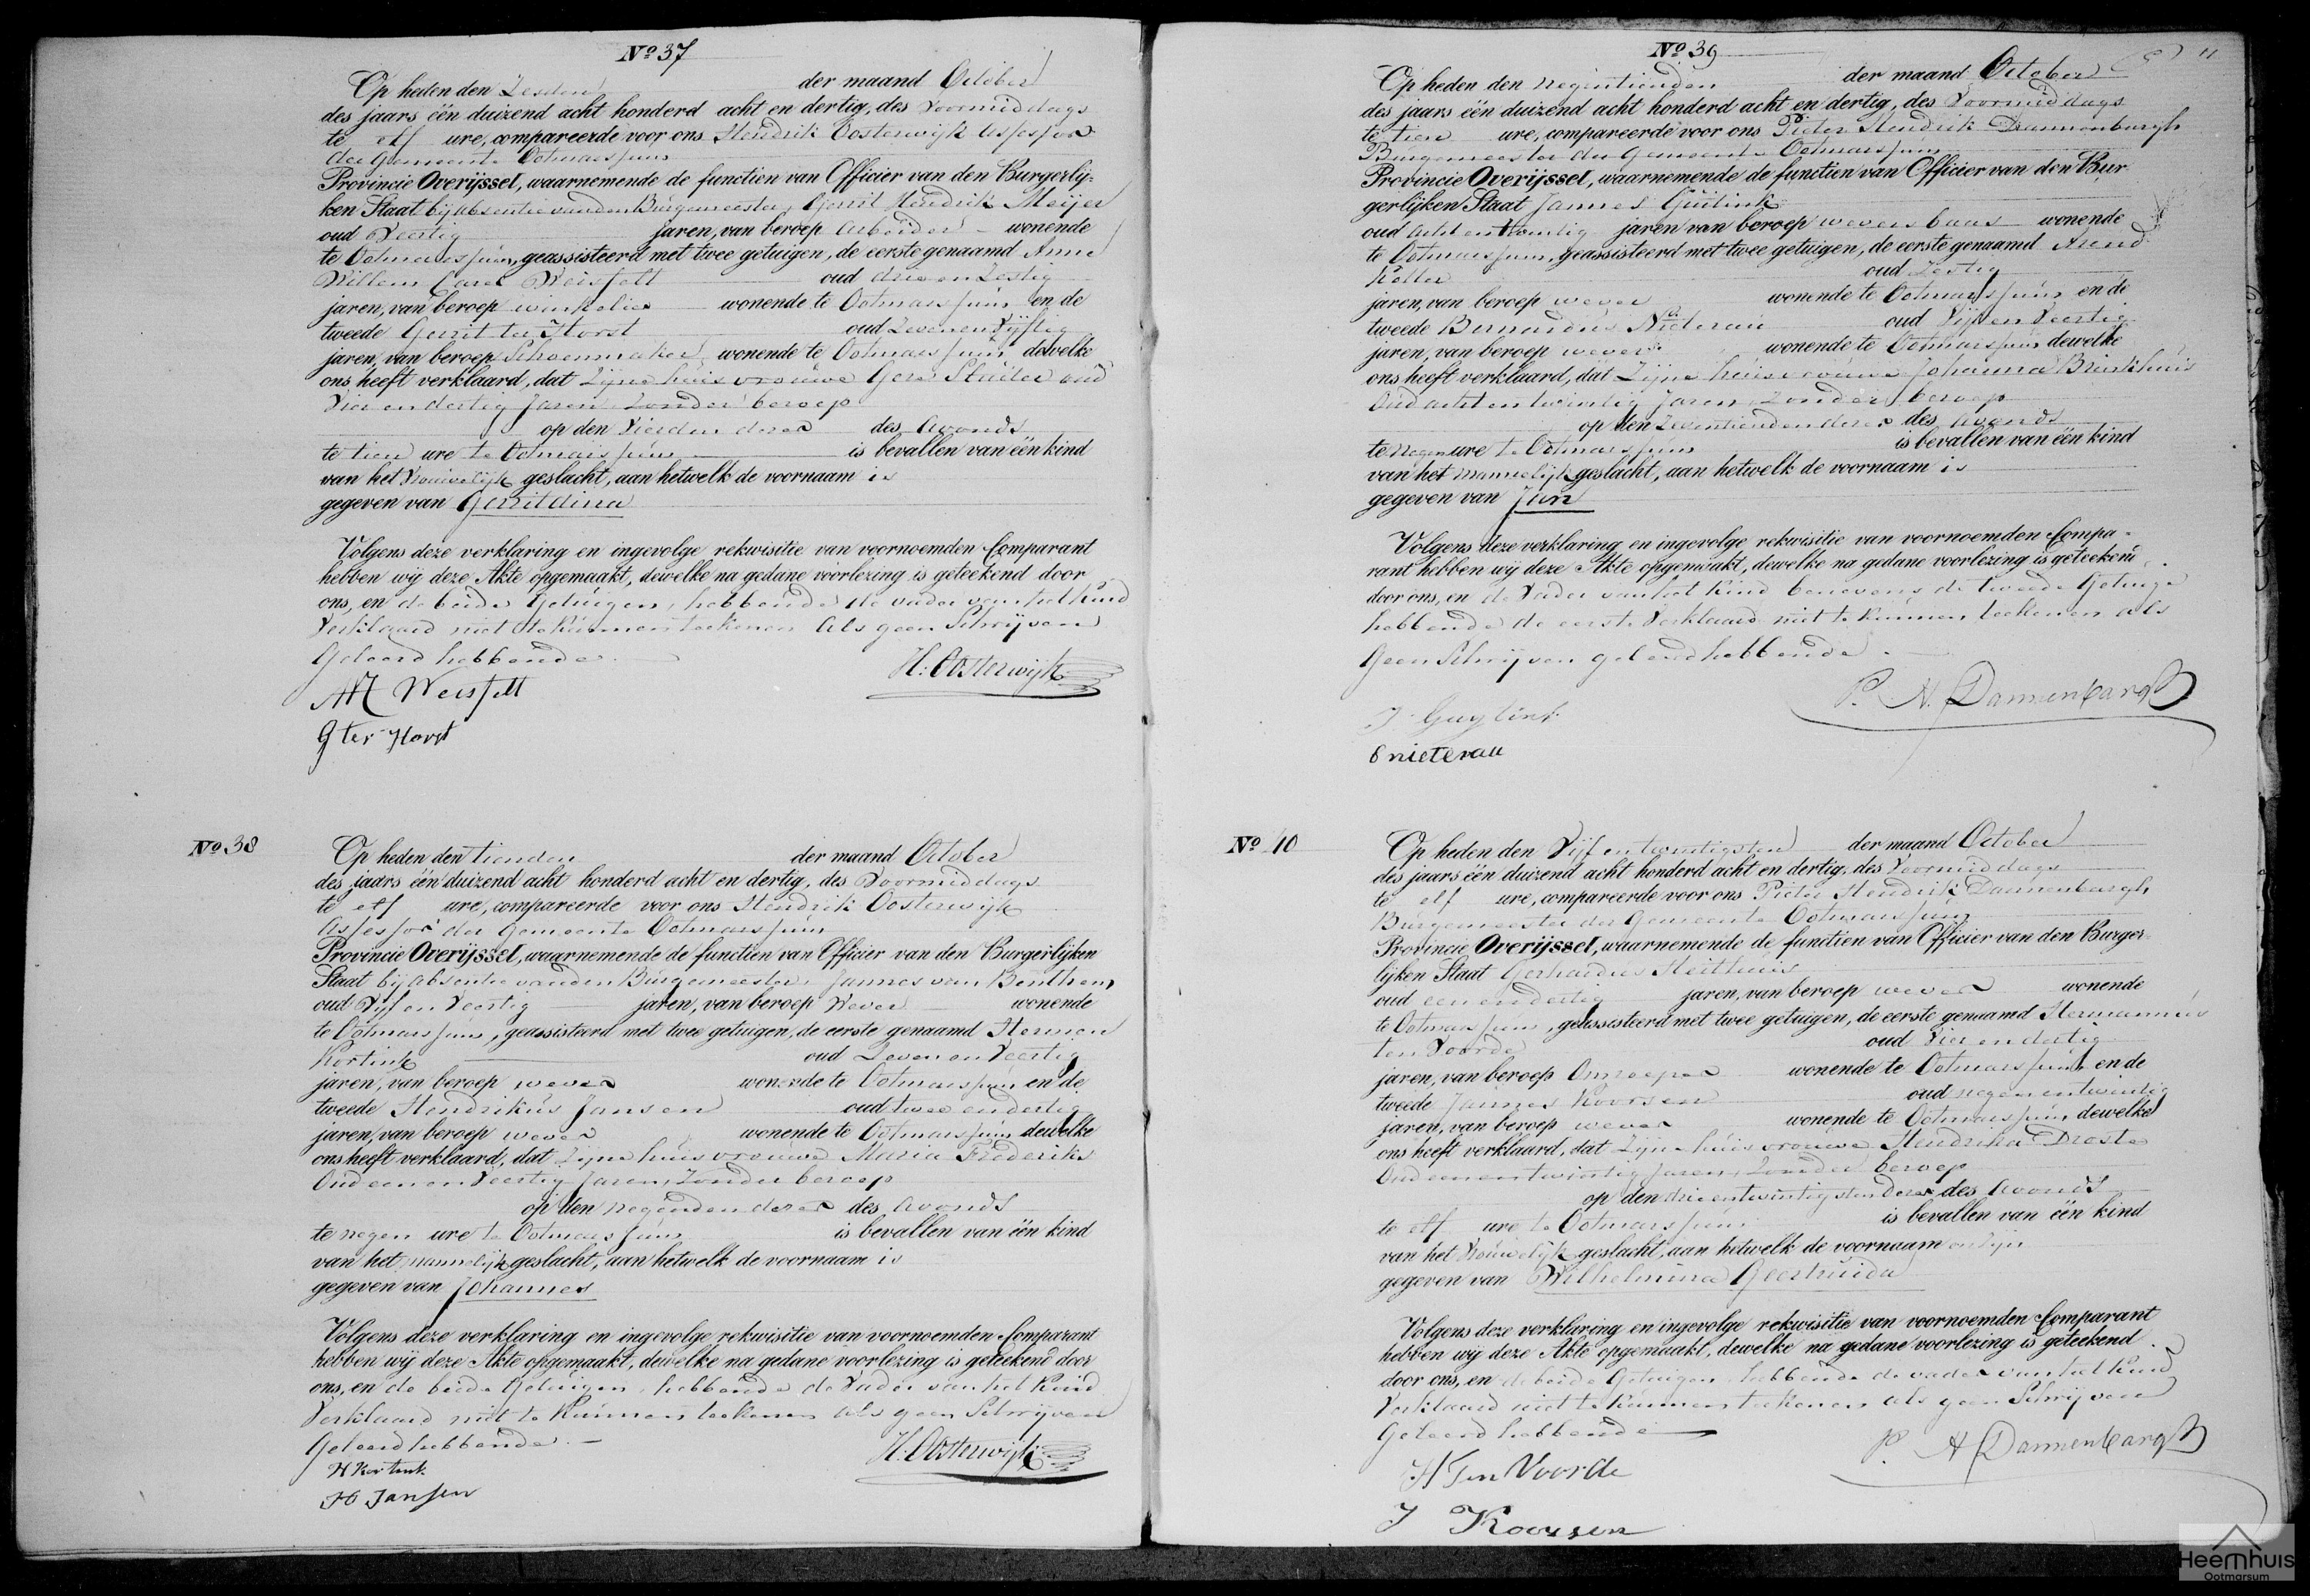 Nº 37
Op heden den Zesden der maand October
des jaars één duizend acht honderd acht en dertig, des Voormiddags
te elf ure, compareerde voor ons Hendrik Oosterwijk Assessor
der Gemeente Ootmarssum
Provincie Overijssel, waarnemende de functien van Officier van den Burgerlij-
ken Staat bij absentie van den Burgemeester, Gerrit Hendrik Meijer
oud Veertig jaren, van beroep Arbeider wonende
te Ootmarssum, geassisteerd met twee getuigen, de eerste genaamd Anne
Willem Carel Weisfelt oud drie en Zestig
jaren, van beroep winkelier wonende te Ootmarssum en de
tweede Gerrit ter Horst oud Zeven en Vijftig
jaren, van beroep Schoenmaker wonende te Ootmarssum dewelke
ons heeft verklaard, dat Zijne huisvrouwe Gese Stuiler oud
Vier en dertig Jaren Zonder beroep
op den Vierden dezer des Avonds
te tien ure te Ootmarssum is bevallen van één kind
van het Vrouwelijk geslacht, aan hetwelk de voornaam is
gegeven van Gerritdina
Volgens deze verklaring en ingevolge rekwisitie van voornoemden Comparant
hebben wij deze Akte opgemaakt, dewelke na gedane voorlezing is geteekend door
ons, en de beide Getuigen, hebbende de vader van het Kind
Verklaard niet te Kunnen teekenen als geen Schrijven
Geleerd hebbende
H: Oosterwijk
Weisfelt
G ter Horst
Nº 38
Op heden den tienden der maand October
des jaars één duizend acht honderd acht en dertig, des Voormiddags
te elf ure, compareerde voor ons Hendrik Oosterwijk
Assessor der Gemeente Ootmarssum
Provincie Overijssel, waarnemende de functien van Officier van den Burgerlijken
Staat bij absentie van den Burgemeester, Jannes van Benthem
oud Vijf en Veertig jaren, van beroep Wever wonende
te Ootmarssum, geassisteerd met twee getuigen, de eerste genaamd Hermen
Kortink oud Zeven en Veertig
jaren, van beroep wever wonende te Ootmarssum en de
tweede Hendrikus Jansen oud twee en dertig
jaren, van beroep wever wonende te Ootmarssum dewelke
ons heeft verklaard, dat Zijne huisvrouwe Maria Frederiks
Oud een en Veertig Jaren, Zonder beroep
op den negenden dezer des Avonds
te negen ure te Ootmarssum is bevallen van één kind
van het mannelijk geslacht, aan hetwelk de voornaam is
gegeven van Johannes
Volgens deze verklaring en ingevolge rekwisitie van voornoemden Comparant
hebben wij deze Akte opgemaakt, dewelke na gedane voorlezing is geteekend door
ons, en de beide Getuigen, hebbende de Vader van het Kind
Verklaard niet te Kunnen teekenen als geen Schrijven
Geleerd hebbende.
H: Oosterwijk
H Kortink
H Jansen
11
Nº 39
Op heden den negentienden der maand October
des jaars één duizend acht honderd acht en dertig, des Voormiddags
te tien ure, compareerde voor ons Pieter Hendrik Dannenbargh
Burgemeester der Gemeente Ootmarssum
Provincie Overijssel, waarnemende de functien van Officier van den Bur-
gerlijken Staat Jannes Guilink
oud acht en twintig jaren van beroep wevers baas wonende
te Ootmarssum, geassisteerd met twee getuigen, de eerste genaamd Arend
Keller oud Zestig
jaren, van beroep wever wonende te Ootmarssum en de
tweede Bernardus Nieterau oud Vijf en Veertig
jaren, van beroep wever wonende te Ootmarssum dewelke
ons heeft verklaard, dat Zijne huisvrouwe Johanna Brinkhuis
Oud acht en twintig Jaren Zonder beroep
op den Zeventienden dezer des Avonds
te negen ure te Ootmarssum is bevallen van één kind
van het mannelijk geslacht, aan hetwelk de voornaam is
gegeven van Jan
Volgens deze verklaring en ingevolge rekwisitie van voornoemden Compa-
rant hebben wij deze Akte opgemaakt, dewelke na gedane voorlezing is geteekend
door ons, en de Vader van het Kind benevens de tweede Getuige
hebbende de eerste Verklaard niet te Kunnen teekenen als
Geen Schrijven geleerd hebbende.
P. H. Dannenbargh
J Guylink
B nieterau
Nº 40
Op heden den Vijf en twintigsten der maand October
des jaars één duizend acht honderd acht en dertig, des Voormiddags
te elf ure, compareerde voor ons Pieter Hendrik Dannenbargh
Burgemeester der Gemeente Ootmarssum
Provincie Overijssel, waarnemende de functien van Officier van den Burger-
lijken Staat Gerhardus Heithuis
oud een en dertig jaren, van beroep wever wonende
te Ootmarssum, geassisteerd met twee getuigen, de eerste genaamd Hermannus
ten Voorde oud Vier en dertig
jaren, van beroep Omroeper wonende te Ootmarssum en de
tweede Jannes Koorsen oud negen en twintig
jaren, van beroep wever wonende te Ootmarssum dewelke
ons heeft verklaard, dat Zijne huisvrouwe Hendrika Droste
Oud een en twintig Jaren, Zonder beroep
op den drie en twintigsten dezer des Avonds
te elf ure te Ootmarssum is bevallen van één kind
van het Vrouwelijk geslacht, aan hetwelk de voornaam en zijn
gegeven van Wilhelmina Geertruida
Volgens deze verklaring en ingevolge rekwisitie van voornoemden Comparant
hebben wij deze Akte opgemaakt, dewelke na gedane voorlezing is geteekend
door ons, en de beide Getuigen hebbende de vader van het Kind
Verklaard niet te Kunnen teekenen als geen Schrijven
Geleerd hebbende
P. H Dannenbargh
H Ten Voorde
J Koorsen
Heemhuis
Ootmarsum